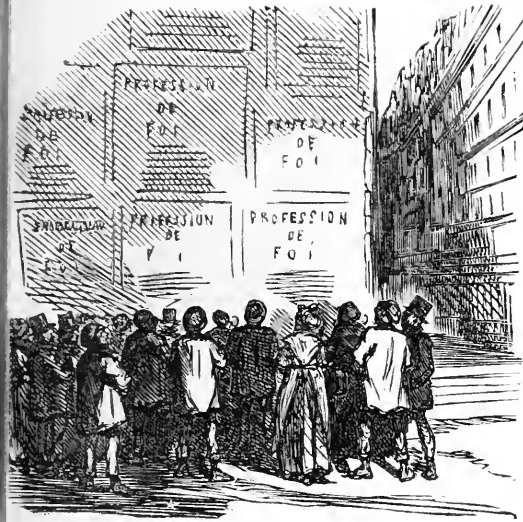 PROFESSION
DE
FOI
DE
FOI
PROFESSION
DE
FOI
PROFESSION
DE
PROFESSION
DE
FOI